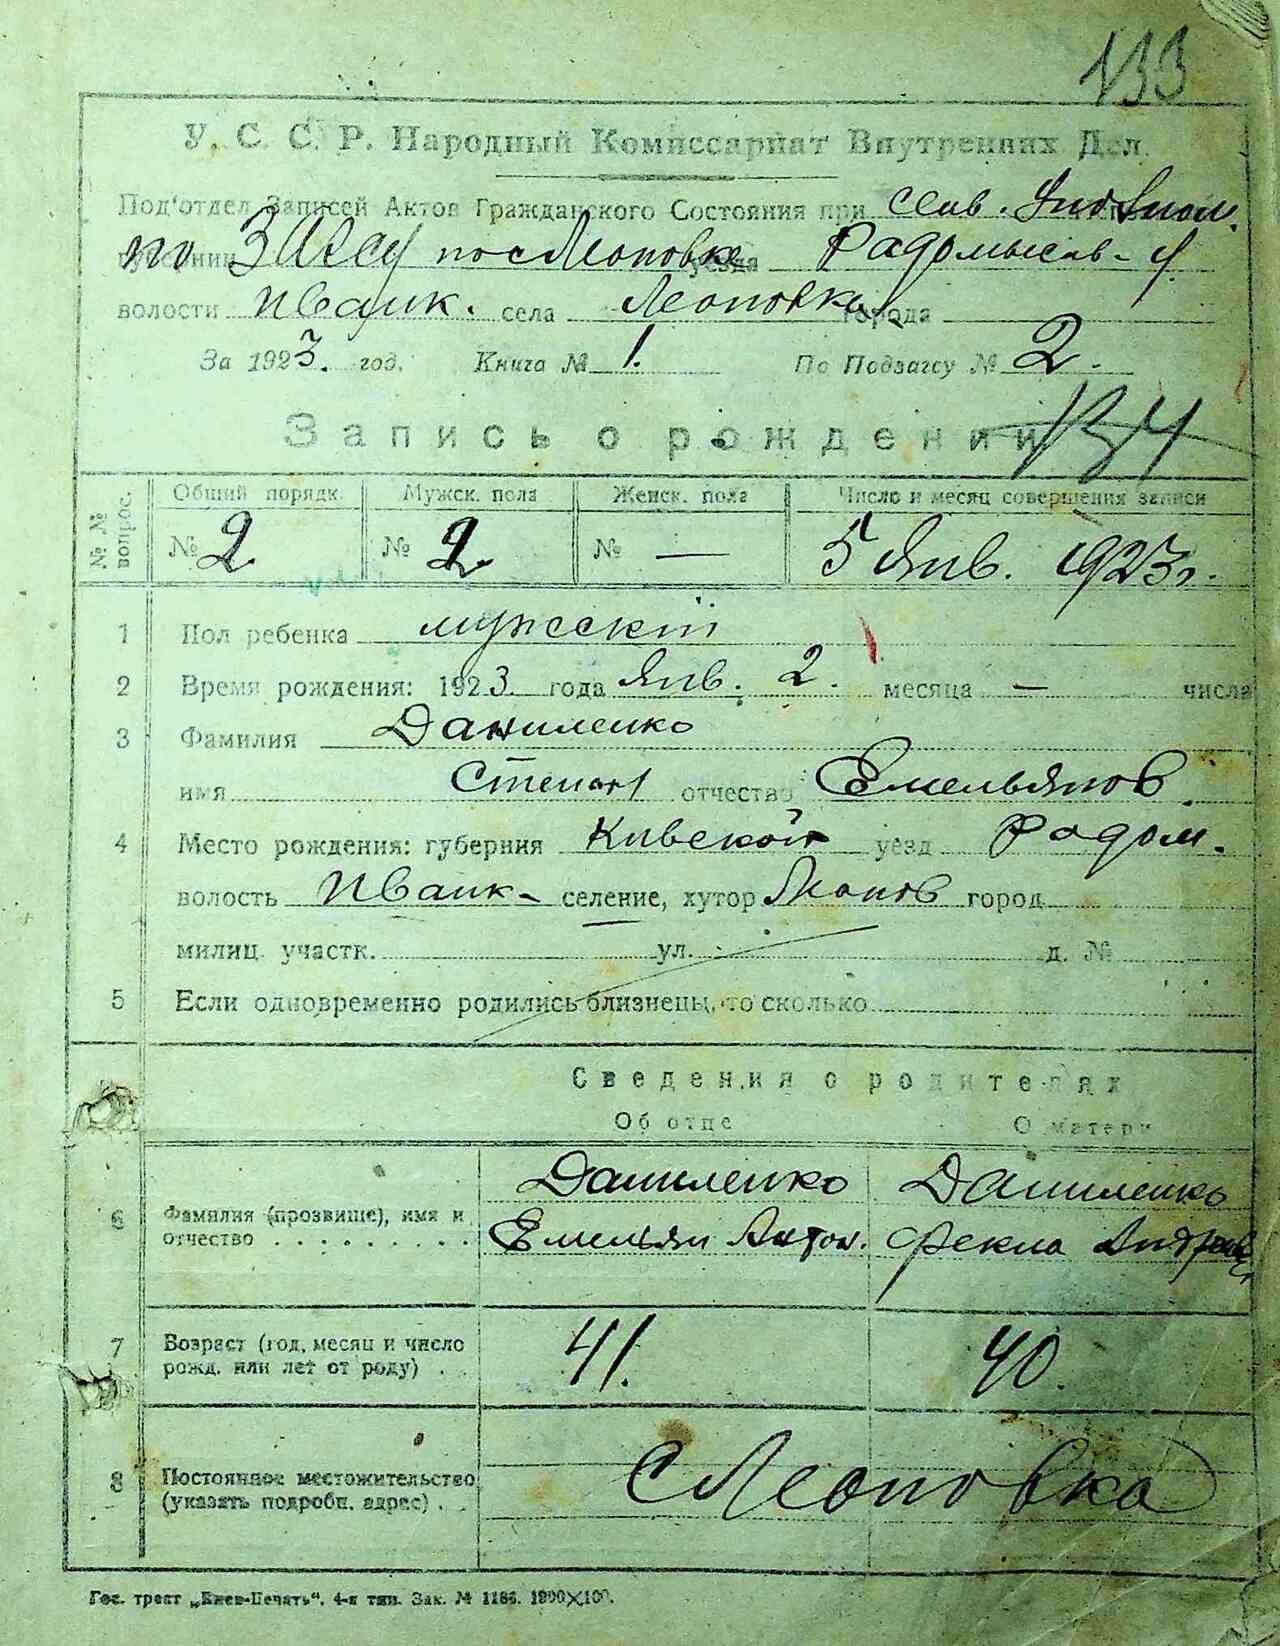 133
У. С. С. Р. Народный Комиссариат Внутренних Дел.
Под'отдел Записей Актов Гражданского Состояния при
губернии по Загсу пос Леоновке уезда Радомысл. у.
волости Иванк. села Леоновка города
За 1923. год. Книга № 1. По Подзагсу № 2.
134
Запись о рождении
№№ вопрос. Общий порядк. Мужск. пола Женск. пола Число и месяц совершения записи
№ 2 № 2 № — 5 Янв. 1923 г.
1 Пол ребенка мужеский
2 Время рождения: 1923. года Янв. 2. месяца — числа
3 Фамилия Даниленко
имя Степан отчество Емельянов.
4 Место рождения: губерния Кивской уезд Радом.
волость Иванк. селение, хутор Леонов город
милиц. участк. ул. д. №
5 Если одновременно родились близнецы, то сколько
Сведения о родителях
Об отце О матери
6 Фамилия (прозвище), имя и отчество
Даниленко Даниленко
Емельян Антон. Фекла Андреев
7 Возраст (год, месяц и число рожд. или лет от роду) 41. 40.
8 Постоянное местожительство (указать подробн. адрес) с Леоновка
Гос. трест „Киев-Печать“. 4-я тип. Зак. № 1186. 1900×100.